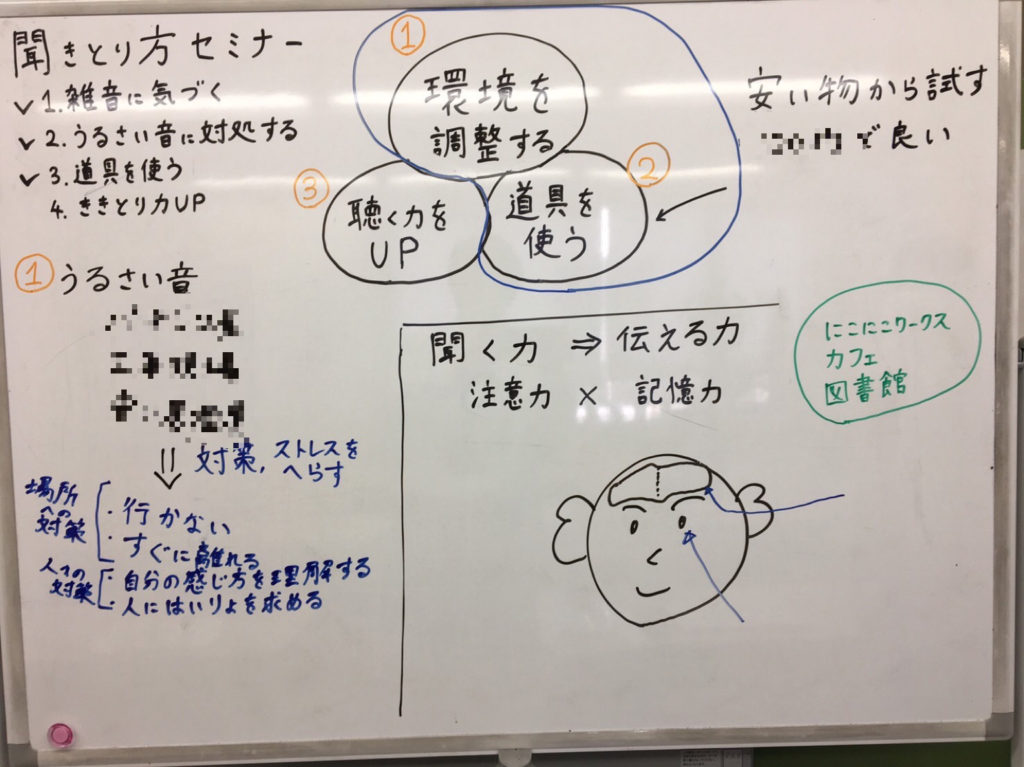 聞きとり方セミナー
✓ 1.雑音に気づく
✓ 2.うるさい音に対処する
✓ 3.道具を使う
4.ききとり力UP
①
環境を
調整する
②
道具を
使う
③
聴く力を
UP
安い物から試す
で良い
① うるさい音
⇓ 対策,ストレスを
へらす
場所
への
対策
・行かない
・すぐに離れる
人への
対策
・自分の感じ方を理解する
・人にはいりょを求める
聞く力 ⇒ 伝える力
注意力 × 記憶力
にこにこワークス
カフェ
図書館